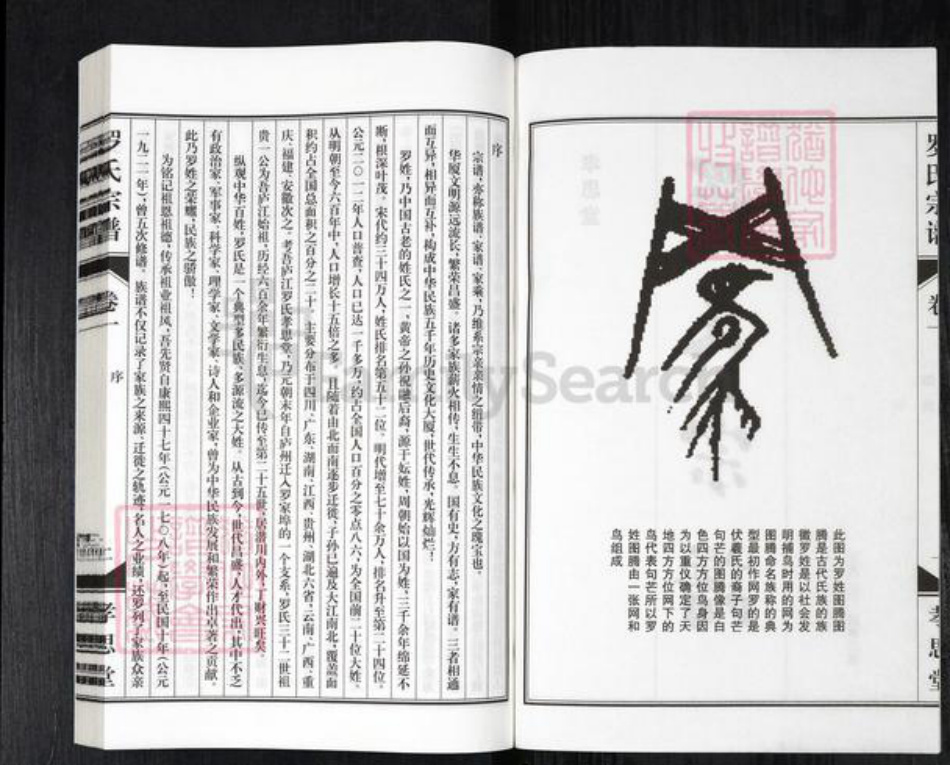 罗氏宗谱
卷一
孝思堂
此图为罗姓图腾图
腾是古代氏族的族
徽罗姓是以社会发
明捕鸟时用的网为
图腾命名族称的典
型最初作网罗的是
伏羲氏的裔子句芒
句芒的图腾像是白
色四方方位鸟身因
为以重仪确定了天
地四方方位网下的
鸟代表句芒所以罗
姓图腾由一张网和
鸟组成
序
宗谱,亦称族谱、家谱、家乘,乃维系宗亲亲情之纽带,中华民族文化之瑰宝也。
华厦文明源远流长,繁荣昌盛。诸多家族薪火相传,生生不息。国有史,方有志,家有谱。三者相通
而互异,相异而互补,构成中华民族五千年历史文化大厦,世代传承,光辉灿烂!
罗姓,乃中国古老的姓氏之一,黄帝之孙祝融后裔,源于妘姓,周朝始以国为姓,三千余年绵延不
断,根深叶茂。宋代约三十四万人,姓氏排名第五十二位。明代增至七十余万人,排名升至第二十四位。
公元二〇一二年人口普查,人口已达一千多万,约占全国人口百分之零点八六,为全国前二十位大姓。
从明朝至今六百年中,人口增长十五倍之多,且随着由北而南逐步迁徙,子孙已遍及大江南北,覆盖面
积约占全国总面积之百分之二十。主要分布于四川、广东、湖南、江西、贵州、湖北六省,云南、广西、重
庆、福建、安徽次之。考吾庐江罗氏孝思堂,乃元朝末年自庐州迁入罗家埠的一个支系,罗氏三十二世祖
贵一公为吾庐江始祖,历经六百余年繁衍生息,迄今已传至第二十五世,居潜川内外,丁财兴旺矣。
纵观中华百姓,罗氏是一个典型多民族、多源流之大姓。从古到今,世代昌盛,人才代出;其中不乏
有政治家、军事家、科学家、理学家、文学家、诗人和企业家,曾为中华民族发展和繁荣作出卓著之贡献。
此乃罗姓之荣耀,民族之骄傲!
为铭记祖恩祖德,传承祖业祖风,吾先贤自康熙四十七年(公元一七〇八年)起,至民国十年(公元
一九二一年),曾五次修谱。族谱不仅记录了家族之来源、迁徙之轨迹、名人之业绩,还罗列了家族众亲
罗氏宗谱
卷一
序
二
孝思堂
FamilySearch